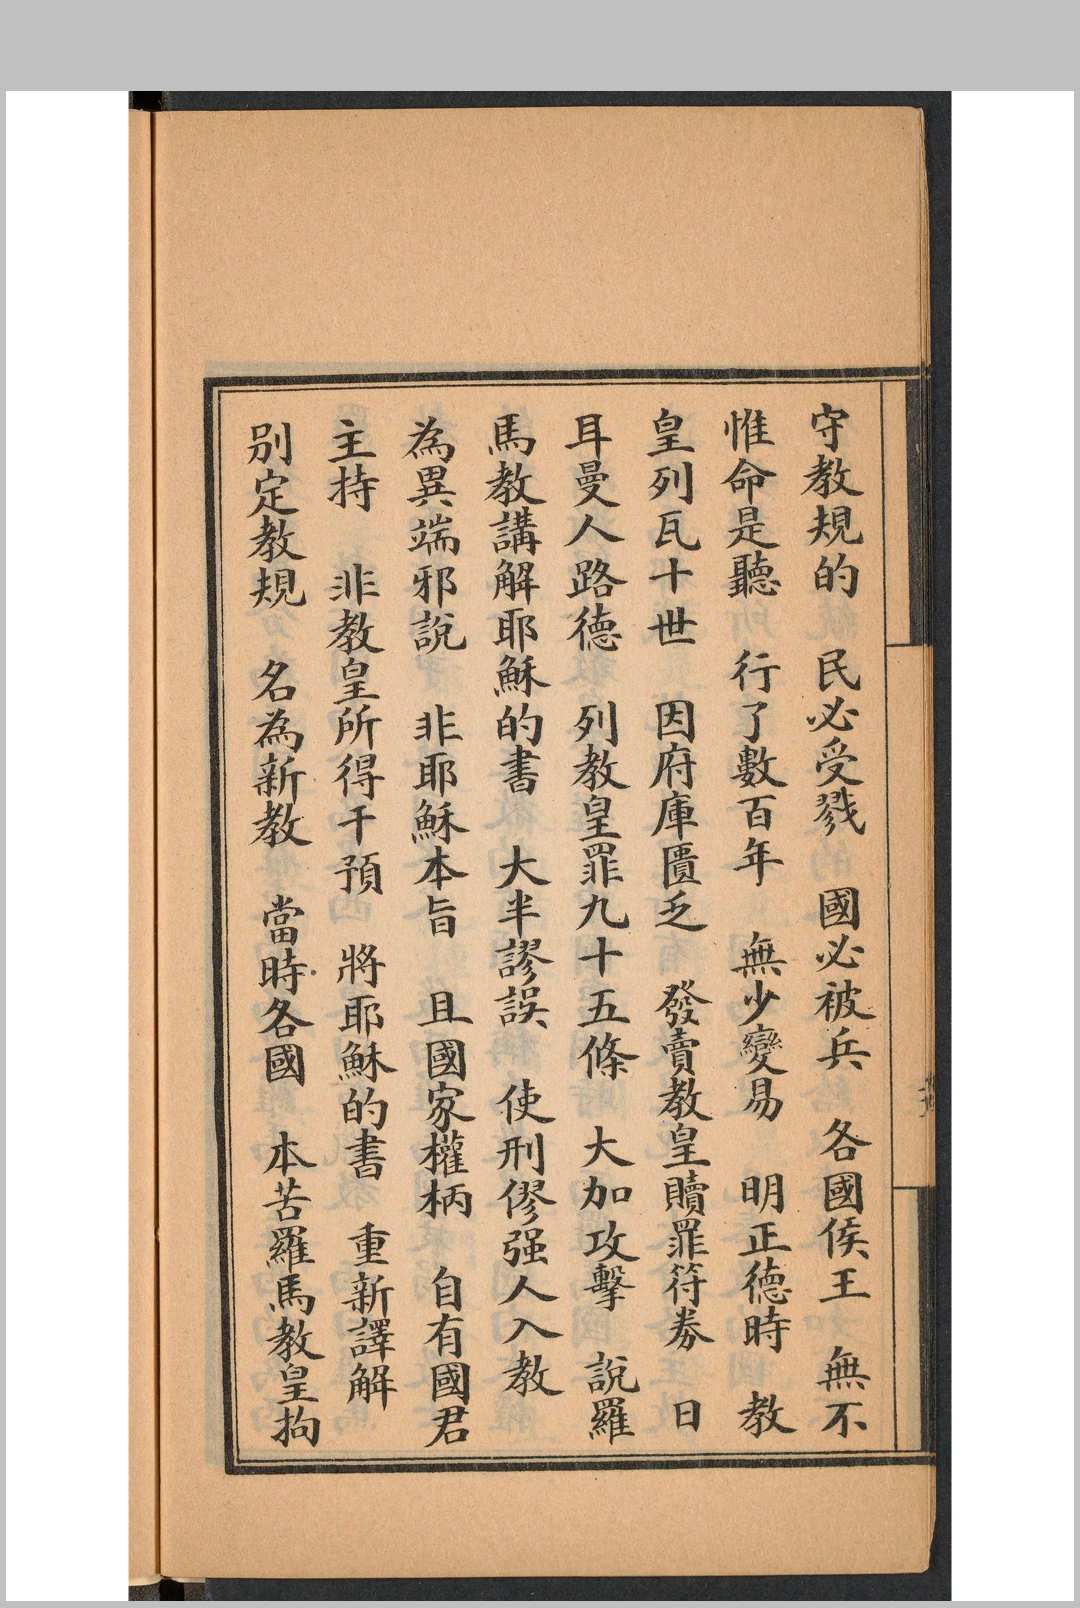 守教規的　民必受戮　國必被兵　各國侯王　無不
惟命是聽　行了數百年　無少變易　明正德時　教
皇列瓦十世　因府庫匱乏　發賣教皇贖罪符券　日
耳曼人路德　列教皇罪九十五條　大加攻擊　說羅
馬教講解耶穌的書　大半謬誤　使刑僇强人入教
為異端邪說　非耶穌本旨　且國家權柄　自有國君
主持　非教皇所得干預　將耶穌的書　重新譯解
別定教規　名為新教　當時各國　本苦羅馬教皇拘